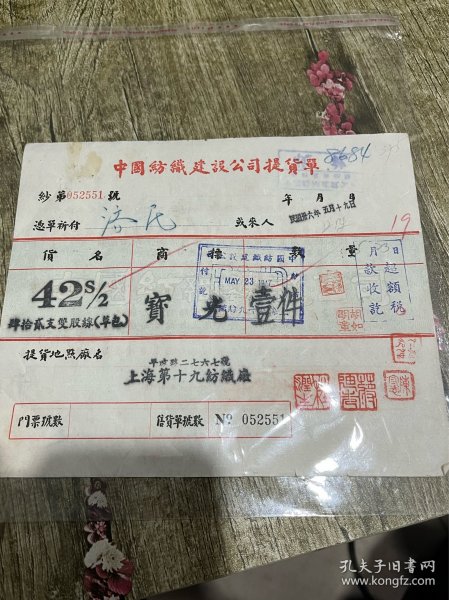 8684
中國紡織建設公司提貨單
紗第052551號
年 月 日
民國卅六年五月十九日
憑單祈付
或來人
19
貨名 商標 數量
42S/2
寶光 壹件
MAY 23 1947
肆拾貳支雙股線(單包)
日超額稅
月 款收訖
提貨地點廠名
平涼路二七六七號
上海第十九紡織廠
門票號數
售貨單號數 Nº 052551
孔夫子旧书网
www.kongfz.com